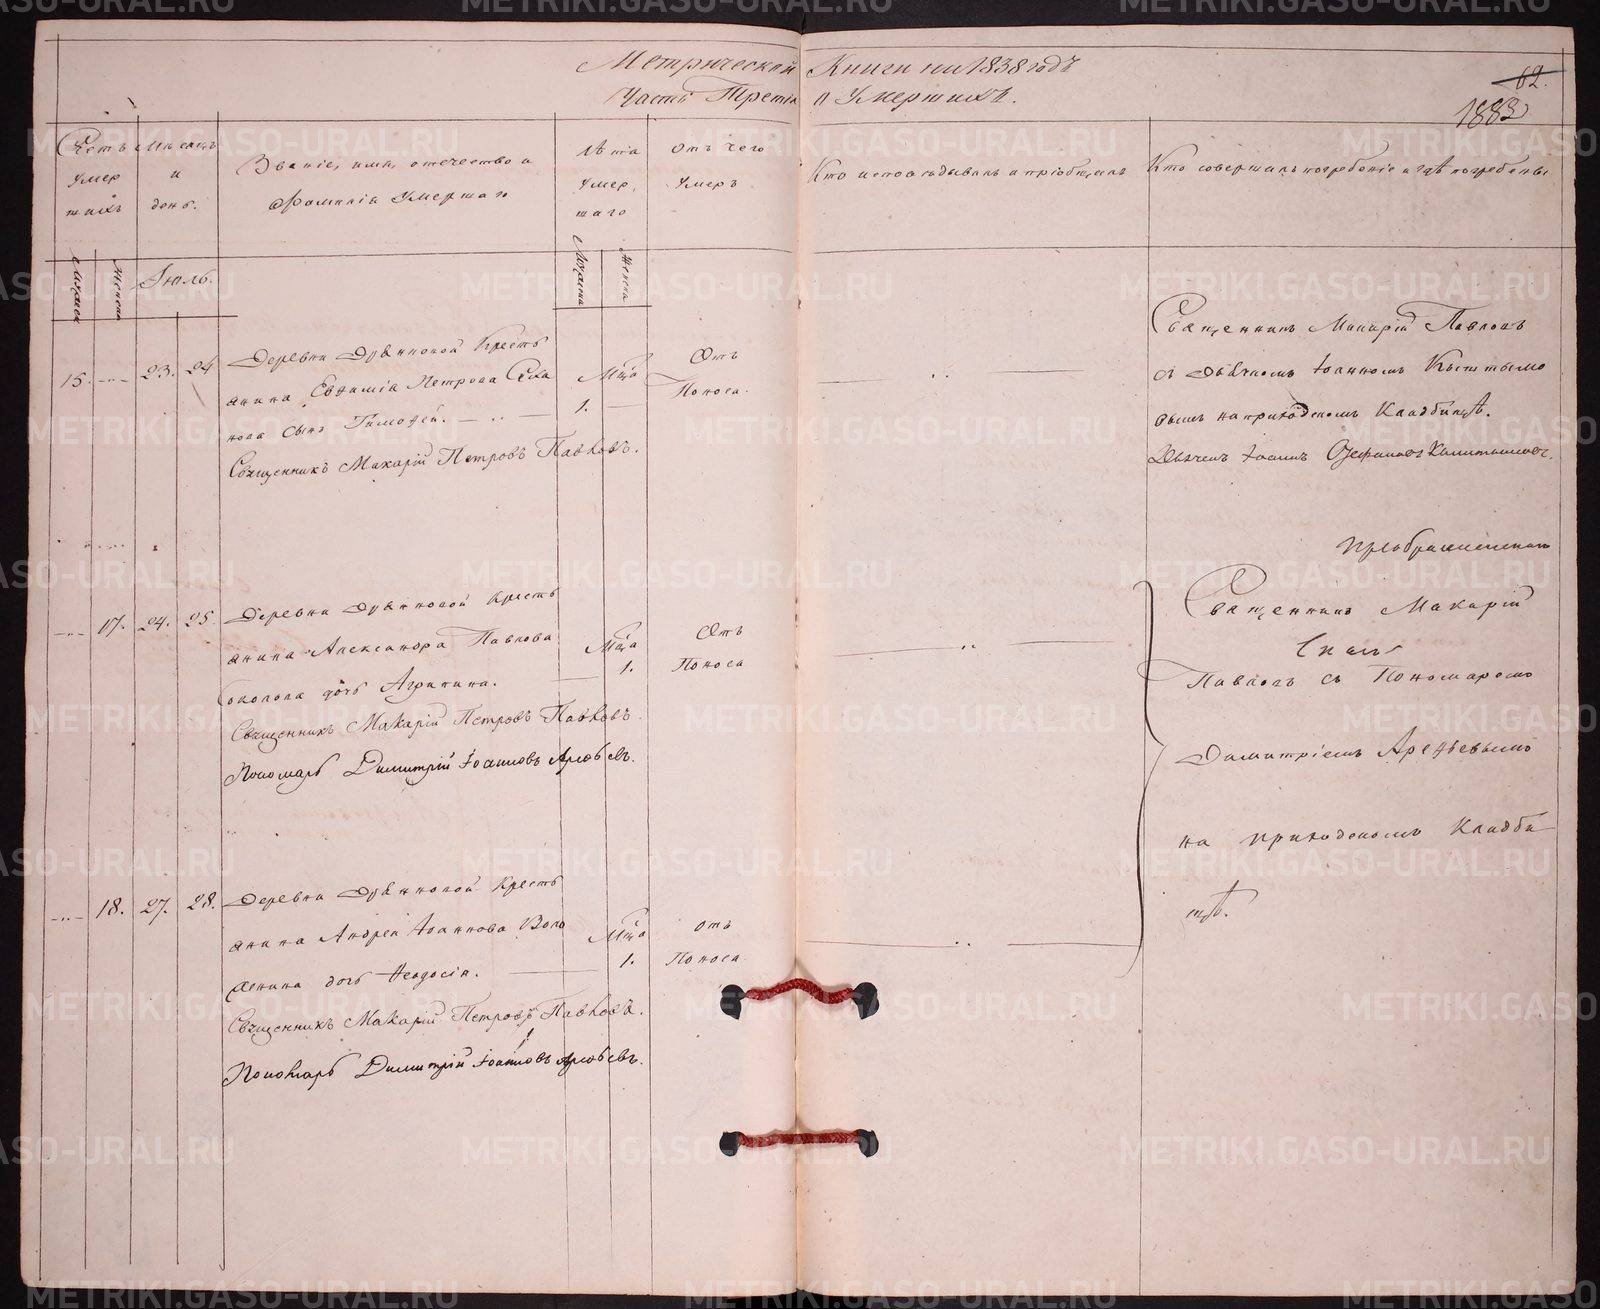 Метрической Книги на 1838 годъ
Часть Третія о Умершихъ.
62.
1883
Счетъ умер шихъ
Мѣсяцъ и день.
Званіе, имя, отечество и фамилія умершаго
Лѣта умер, шаго
Отъ чего умеръ
Кто исповѣдывалъ и пріобщалъ
Кто совершалъ погребеніе и гдѣ погребены
Мужеск
Женска
Іюль.
Мужеска
Женска
15. 23. 24
Деревни крестъ
янина Евфимія Петрова
нова сынъ Тимофей.
Священникъ Макарій Петровъ Павловъ.
Мца
1.
Отъ
Поноса.
Священникъ Макарій Павловъ
съ Дьячкомъ Іоанномъ
вымъ на приходскомъ Кладбищѣ.
Дьячекъ Іоаннъ Стефановъ
17. 24. 25.
Деревни крестъ
янина Александра Павлова
Соколова дочь Агрипина.
Священникъ Макарій Петровъ Павловъ.
Пономарь Димитрій Іоанновъ Арефьевъ.
Мца
1.
Отъ
Поноса
Преображенскій
Священникъ Макарій
Павловъ съ Пономаремъ
Димитріемъ Арефьевымъ
на приходскомъ Кладби
щѣ.
18. 27. 28.
Деревни крестъ
янина Андрея Іоаннова Воло
дочь Феодосія.
Священникъ Макарій Петровъ Павловъ.
Пономарь Димитрій Іоанновъ Арефьевъ.
Мца
1.
отъ
Поноса
METRIKI.GASO-URAL.RU